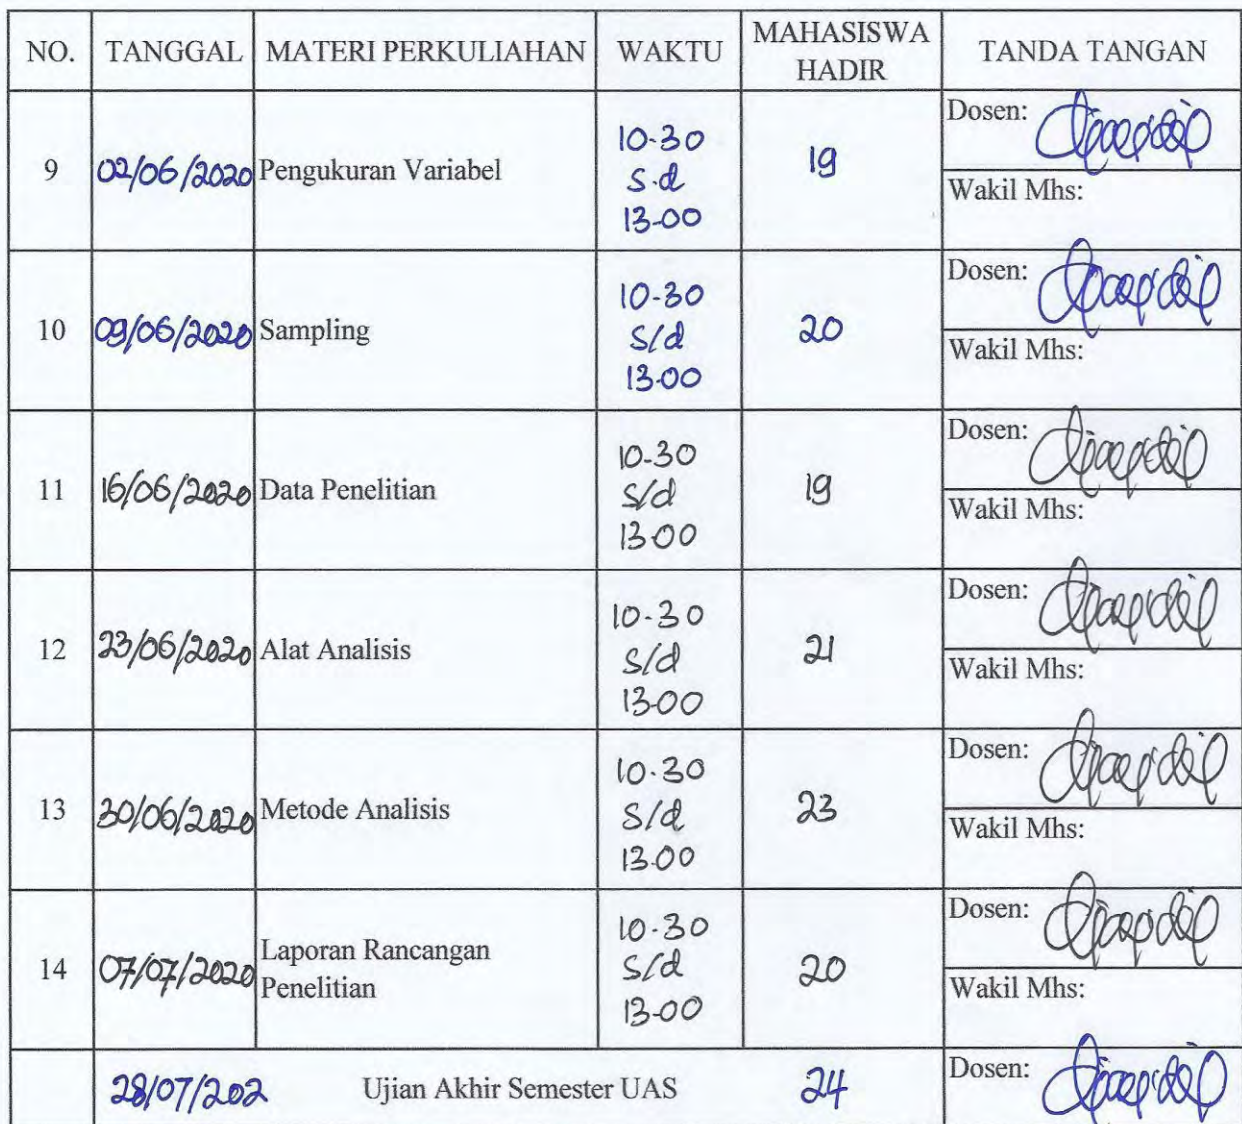 NO. TANGGAL MATERI PERKULIAHAN WAKTU MAHASISWA HADIR TANDA TANGAN
9 02/06/2020 Pengukuran Variabel 10-30 S.d 13-00 19 Dosen:
Wakil Mhs:
10 09/06/2020 Sampling 10-30 S/d 13-00 20 Dosen:
Wakil Mhs:
11 16/06/2020 Data Penelitian 10-30 S/d 13-00 19 Dosen:
Wakil Mhs:
12 23/06/2020 Alat Analisis 10-30 S/d 13-00 21 Dosen:
Wakil Mhs:
13 30/06/2020 Metode Analisis 10-30 S/d 13-00 23 Dosen:
Wakil Mhs:
14 07/07/2020 Laporan Rancangan Penelitian 10-30 S/d 13-00 20 Dosen:
Wakil Mhs:
28/07/202 Ujian Akhir Semester UAS 24 Dosen: